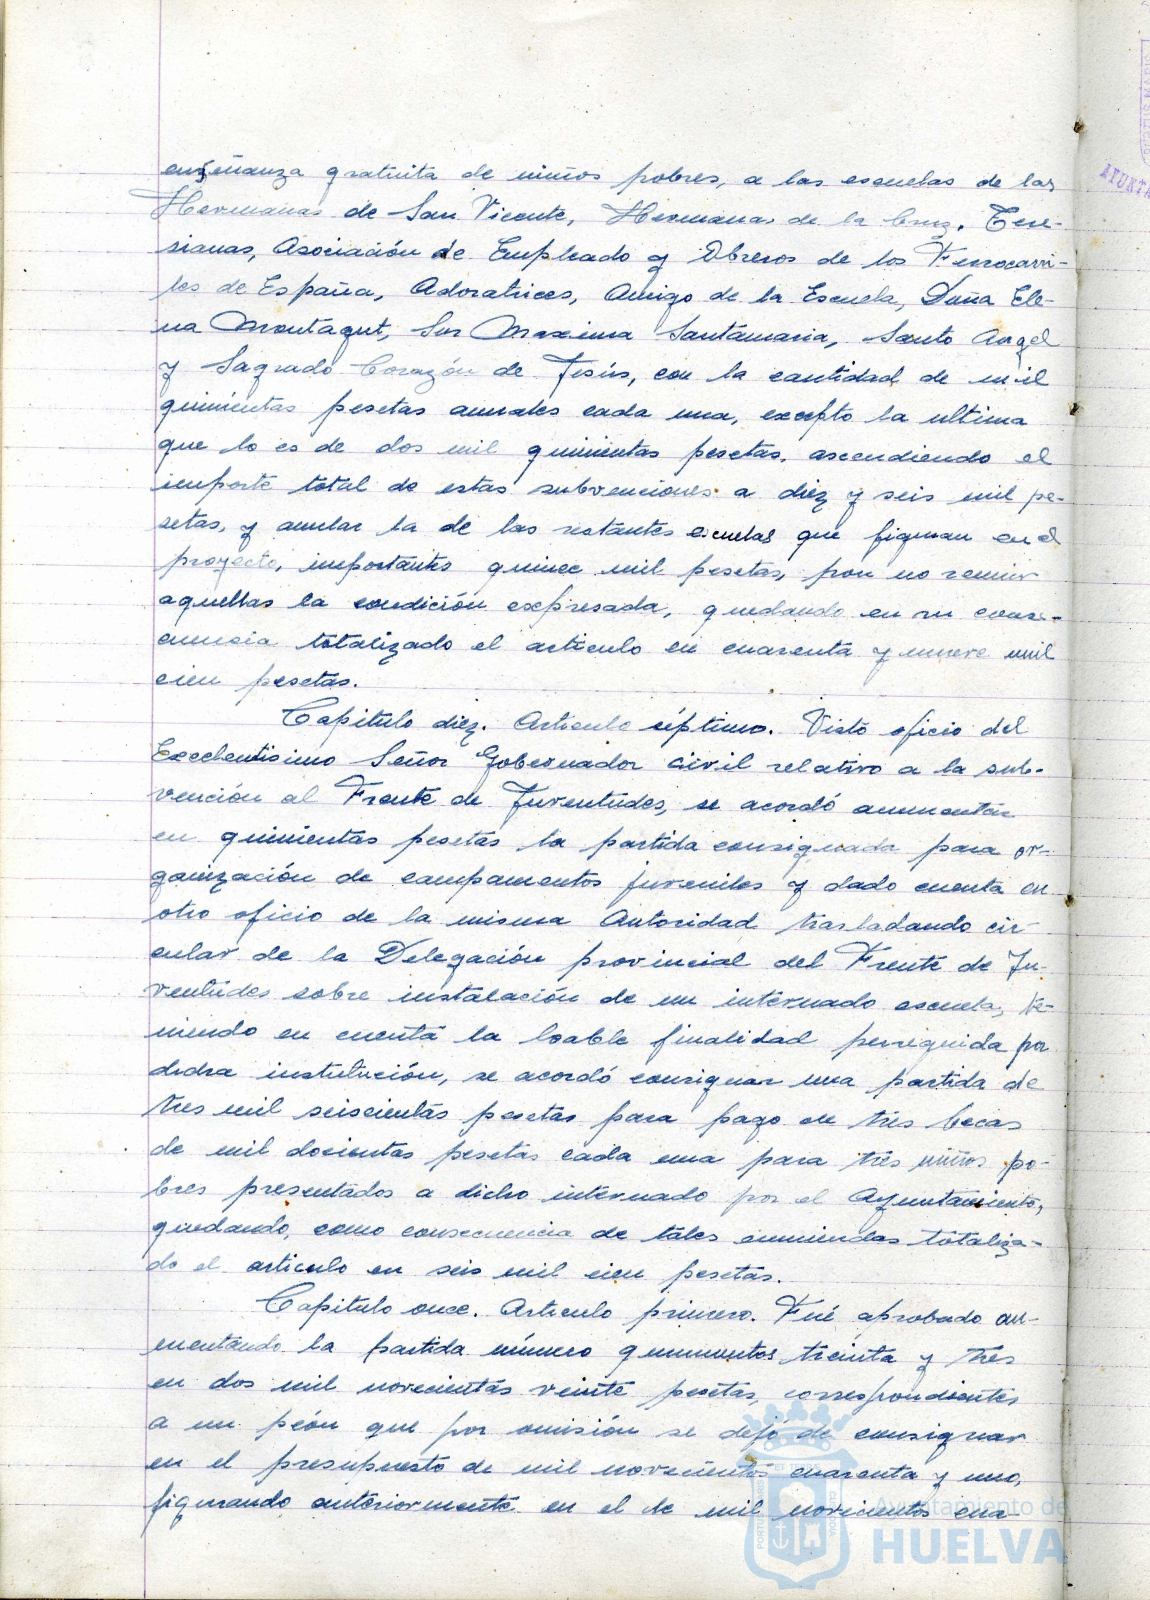 enseñanza gratuita de niños pobres, a las escuelas de las
Hermanas de San Vicente, Hermanas de la Cruz. Tere-
sianas, Asociación de Empleado y Obreros de los Ferrocarri-
les de España, Adoratrices, Amigo de la Escuela, Doña Ele-
na Montagut, Sor Maxima Santamaria, Santo Angel
y Sagrado Corazón de Jesús, con la cantidad de mil
quinientas pesetas anuales cada una, excepto la ultima
que lo es de dos mil quinientas pesetas. ascendiendo el
importe total de estas subvenciones a diez y seis mil pe-
setas, y anular la de las restantes escuelas que figuran en el
proyecto, importantes quince mil pesetas, por no reunir
aquellas la condición expresada, quedando en su conse-
cuencia totalizado el articulo en cuarenta y nueve mil
cien pesetas.
Capitulo diez. Articulo séptimo. Visto oficio del
Excelentisimo Señor Gobernador civil relativo a la sub-
vención al Frente de Juventudes, se acordó aumentar
en quinientas pesetas la partida consignada para or-
ganización de campamentos juveniles y dado cuenta en
otro oficio de la misma Autoridad trasladando cir-
cular de la Delegación provincial del Frente de Ju-
ventudes sobre instalación de un internado escuela, te-
niendo en cuenta la loable finalidad perseguida por
dicha institución, se acordó consignar una partida de
tres mil seiscientas pesetas para pago de tres becas
de mil docientas pesetas cada una para tres niños po-
bres presentados a dicho internado por el Ayuntamiento,
quedando, como consecuencia de tales enmiendas totaliza-
do el articulo en seis mil cien pesetas.
Capitulo once. Articulo primero. Fué aprobado au-
mentando la partida número quinientos treinta y tres
en dos mil novecientas veinte pesetas, correspondientes
a un peón que por omisión se dejó de consignar
en el presupuesto de mil novecientos cuarenta y uno,
figurando anteriormente en el de mil novecientos cua
Ayuntamiento de
HUELVA